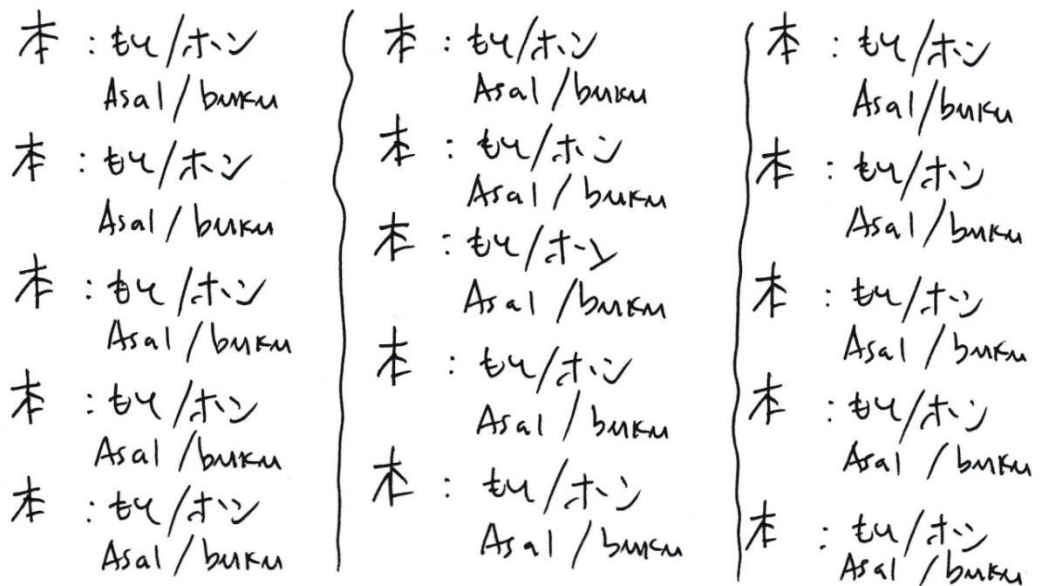 本 : もと/ホン
Asal / buku
本 : もと/ホン
Asal / buku
本 : もと/ホン
Asal / buku
本 : もと/ホン
Asal / buku
本 : もと/ホン
Asal / buku
本 : もと/ホン
Asal / buku
本 : もと/ホン
Asal / buku
本 : もと/ホン
Asal / buku
本 : もと/ホン
Asal / buku
本 : もと/ホン
Asal / buku
本 : もと/ホン
Asal / buku
本 : もと/ホン
Asal / buku
本 : もと/ホン
Asal / buku
本 : もと/ホン
Asal / buku
本 : もと/ホン
Asal / buku